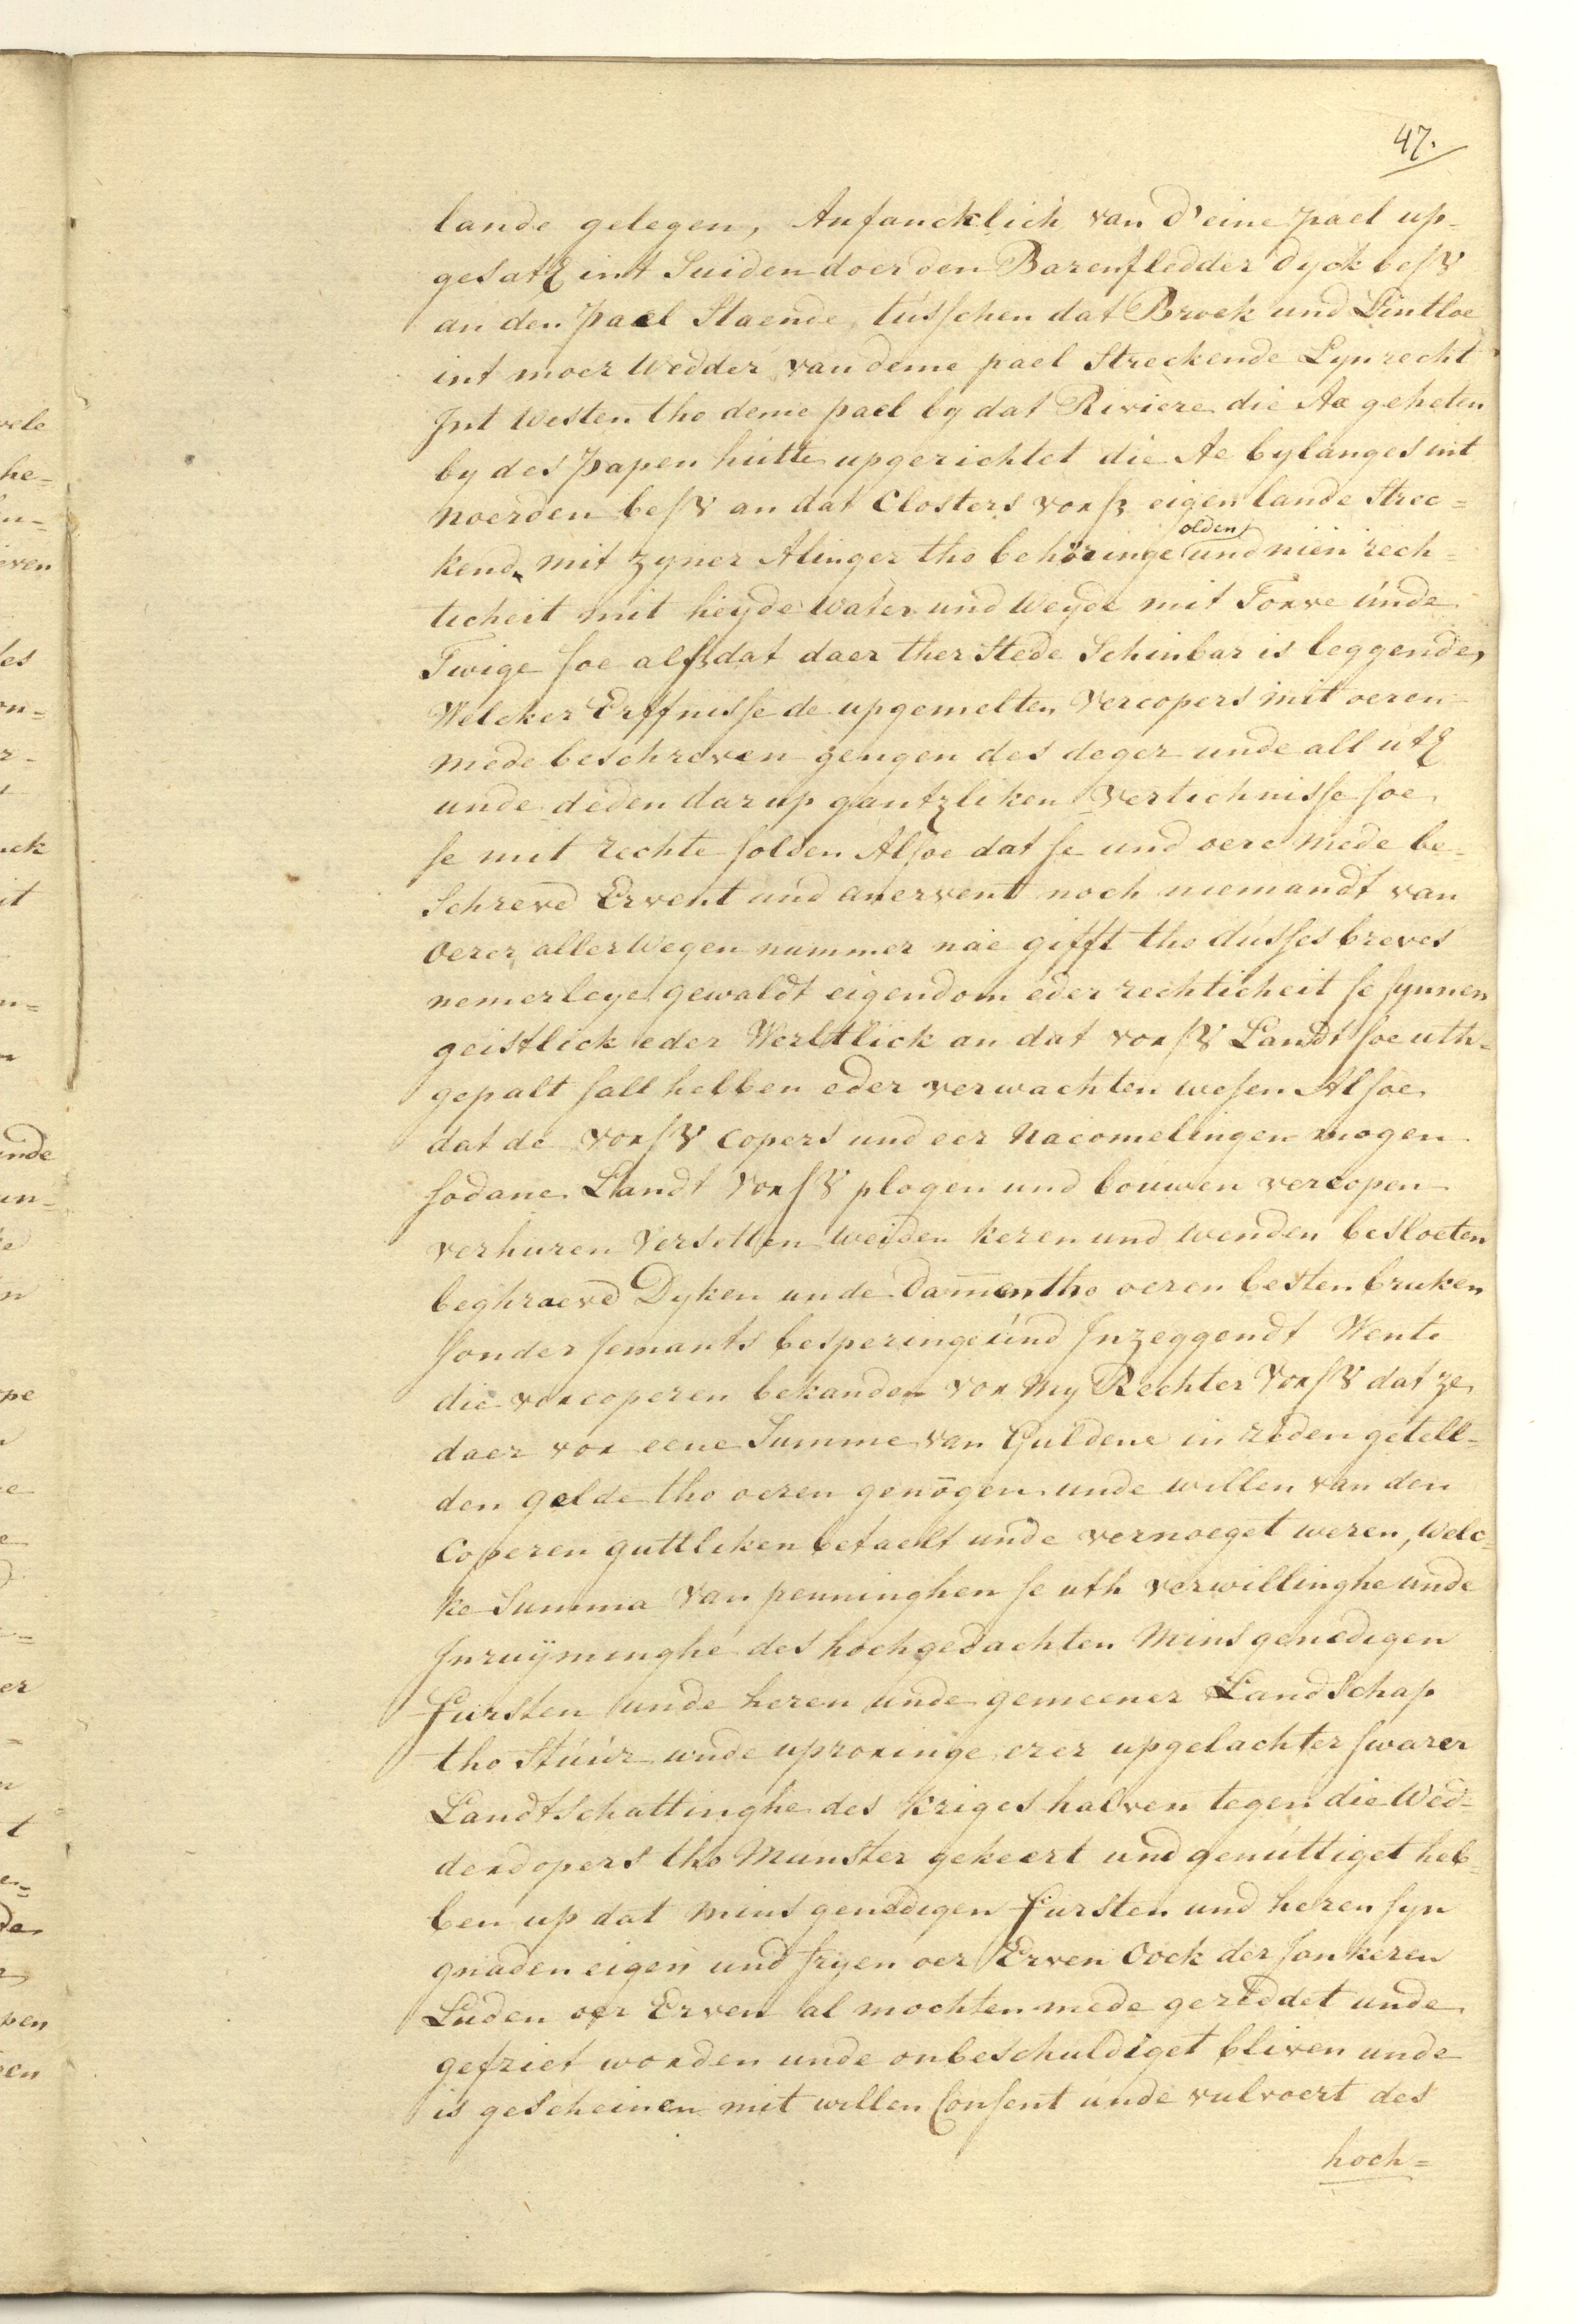 47.
lande gelegen, Anfancklich van d'eine pael up-
gesatz int Suiden doer den Barenfledder dyck beß
an den pael Staende, tússchen dat Broek und Lintloe
int moer Wedder van deme pael Streckende Lynrecht
Int Westen tho deme pael by dat Riviere die Aa geheten
by des papen hútte upgerichtet die Ae bylanges int
noerden beß an dat Closters vorß eigen lande Strec=
kend, mit zyner Alinger tho behöringe olden und niën rech=
ticheit mit heyde Water und Weyde mit Torve únde
Twige soe alß dat daer ther Stede Schinbar is leggende,
Welcker Erffnisse de upgemelten Vercopers mit oeren
mede beschreven gengen des deger unde all útz
unde deden dar up gantzliken Vertichnisse soe
se mit rechte solden Alsoe dat se und oere mede be-
Schreved Ervent und anervent noch niemandt van
Oerer aller Wegen nummer näe gifft tho dússes breves
nemerleye gewaldt eigendom eder rechticheit se synnen
geistlick eder Werltlick an dat vorß Landt soe uth=
gepalt sall hebben eder verwachten wesen Alsoe
dat de vorß Copers und eer Nacomelingen mogen
sodane Landt vorß plogen und boúwen vercopen
verhuren Versetten weiden keren und wenden besloeten
beghraeved Dyken unde dammen tho oeren besten bruken
sonder jemants besperinge únd Inzeggendt Wente
die vorcoperen bekanden vor My Rechter Vorß dat ze
daer vor eene Summe van Guldene in reden getell-
den gelde tho oeren genögen unde willen van den
Coperen guttliken betaelt unde vernoeget weren, Welc=
ke Summa van penninghen se uth verwillinghe unde
Inruÿminghe des hochgedachten Mins genedigen
fursten unde heren unde gemeener Landschap
tho Stúúr unde uproringe erer upgelachter swarer
Landtschattinghe des kriges halven tegen die Wed=
derdopers tho Munster gekeert und genúttiget heb=
ben up dat mins genedigen fursten und heren syn
gnaden eigen und fryen oer Erven Oock der Jonkeren
Luden oer Erven al mochten mede gereddet unde
gefriet worden unde onbeschuldiget bliven unde
is gescheinen mit willen Consent únde vulvoert des
hoch=